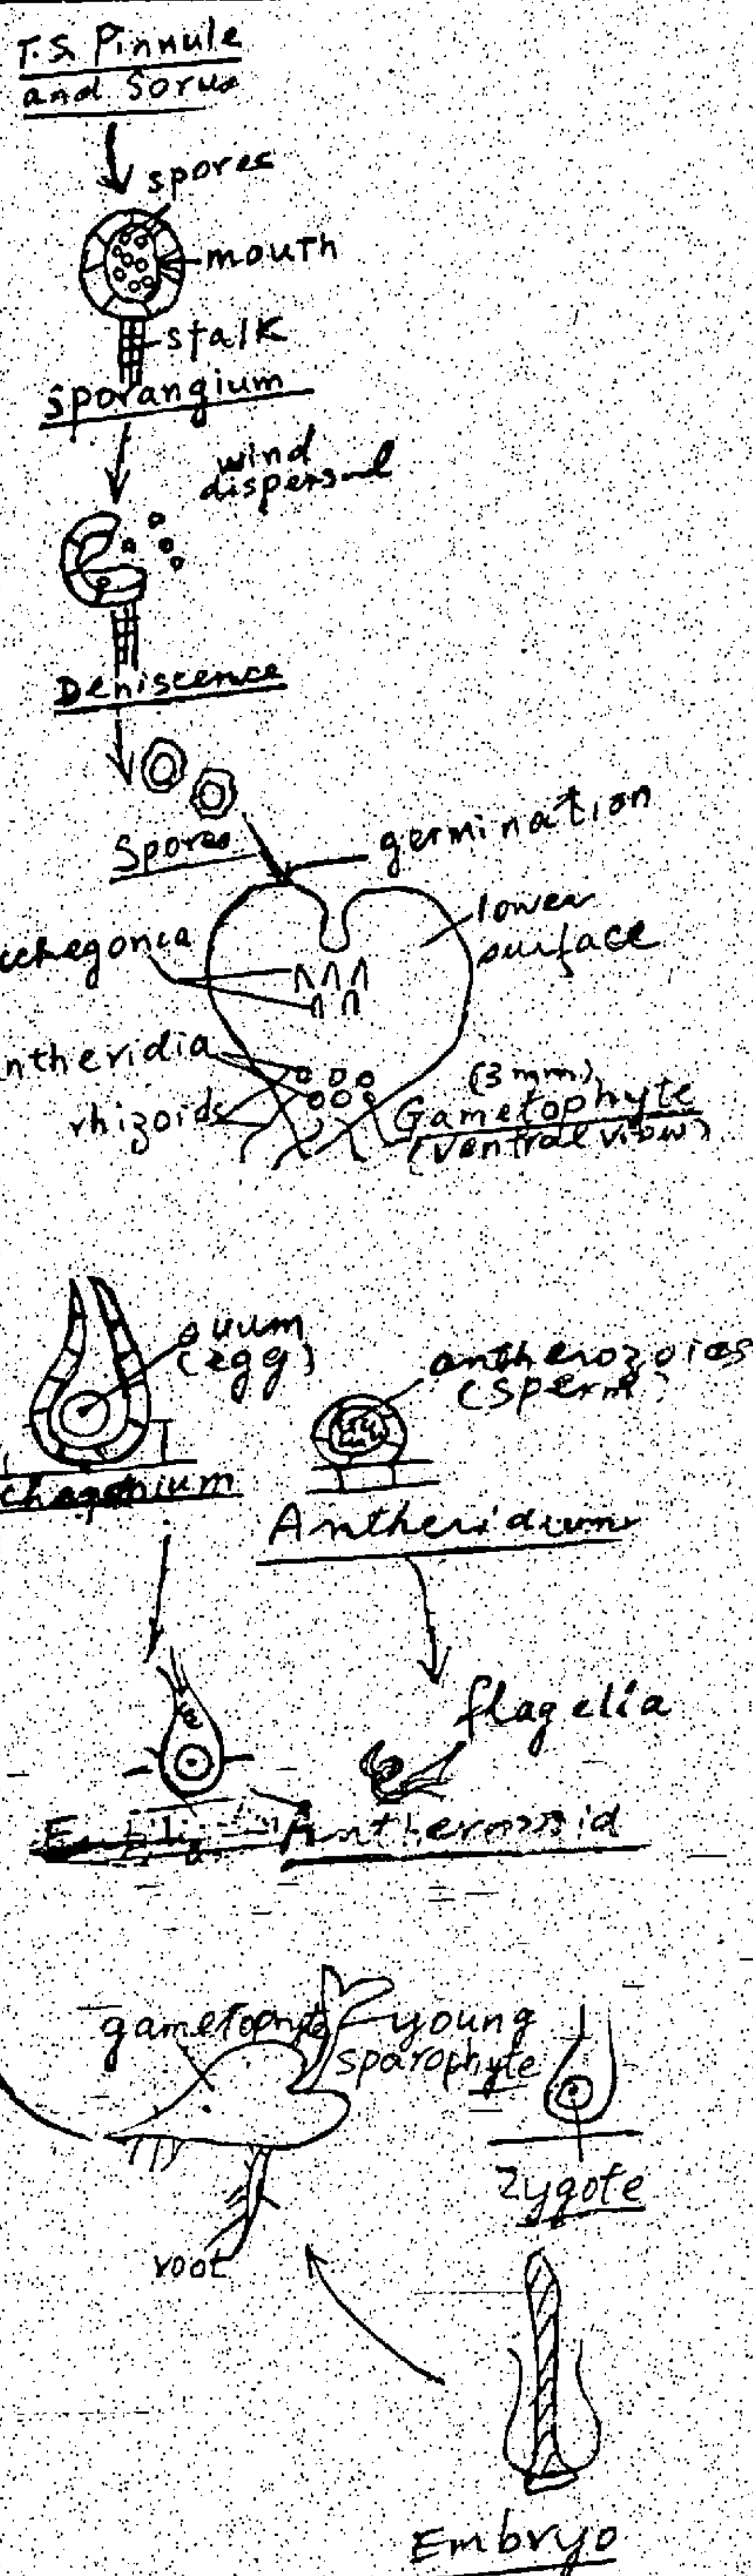 T.S. Pinnule
and Sorus
spores
mouth
stalk
Sporangium
wind
dispersal
Deniscence
Spores
germination
lower
surface
chegonia
ntheridia
rhizoids
(3 mm)
Gametophyte
(ventral view)
ovum
(egg)
antherozoids
(sperm)
chegonium
Antheridium
flagella
gametophyte
young
sporophyte
root
Zygote
Embryo